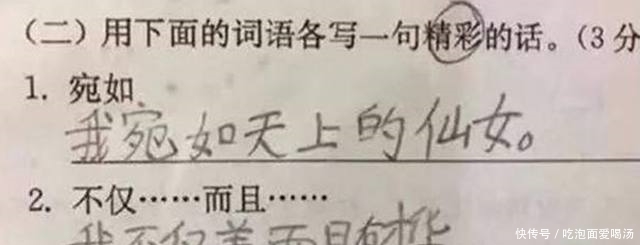 (二)用下面的词语各写一句精彩的话。(3分
1. 宛如
我宛如天上的仙女。
2. 不仅……而且……
我不仅美而且有才华
快传号/吃泡面爱喝汤